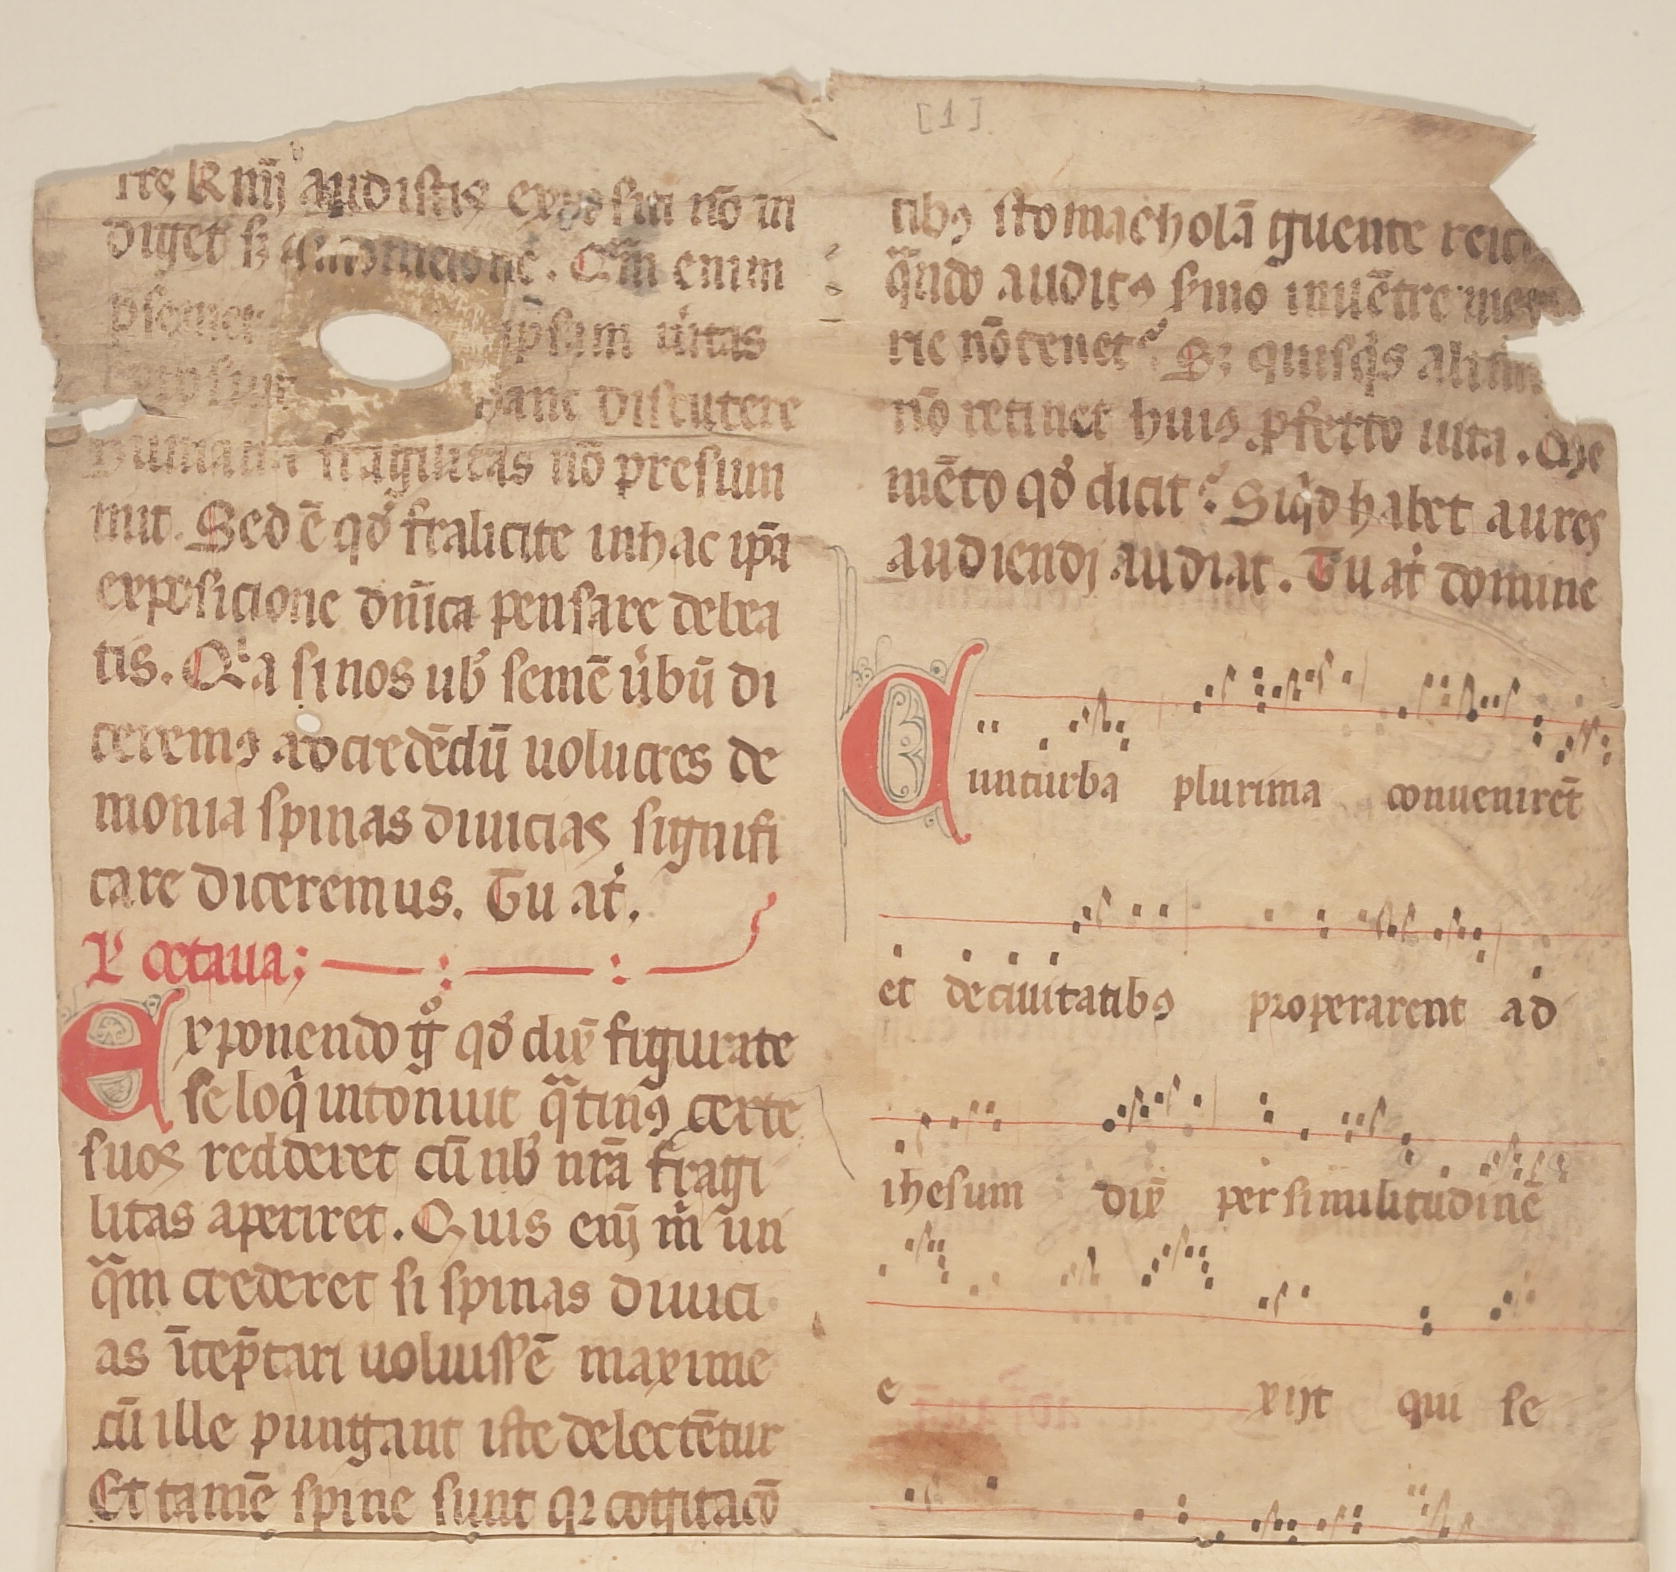 audistis exposicione nō in
diget s; Q̄m enim
ip̄sum u̾itas
hanc discutere
humana fragilitas nō presum
mit. Sed ē qđ sħalicite in hac ip̄a
exposicione dn̄ica pensare debea
tis. Qͥa si nos uob̾ semē u̾bū di
ceremꝰ ad credēdū uolucres de
monia spinas diuicias signifi
care diceremus. Tu at̾.
octaua;
Exponendo gͦ qđ dix̄ figurate
se loq̾ intonuit qͣtin̾ꝰ certe
suos redderet cū ub̾ nr̄a fragi
litas aperiret. Quis enī m̾ un
qͣm crederet si spinas diuici
as īterp̄tari uoluissē maxime
cū ille pungant iste delectētur
Et tamē spine sunt qꝛ cogitacō
[1]
tibꝰ stomacho lāguente
qͣndo auditꝰ s̾mo in uētre
rie nō tenet᷑ Sꝫ quisqͥs
nō retinet huiꝰ ꝓfecto uita. Me
mēto qđ dicit᷑ Siqͥd habet aures
audiendi audiat. Tu at̾ domine
Cun turba plurima conuenirēt
et de ciuitatibꝰ properarent ad
ihesum dix̄ per similitudinē
e xijt qui se